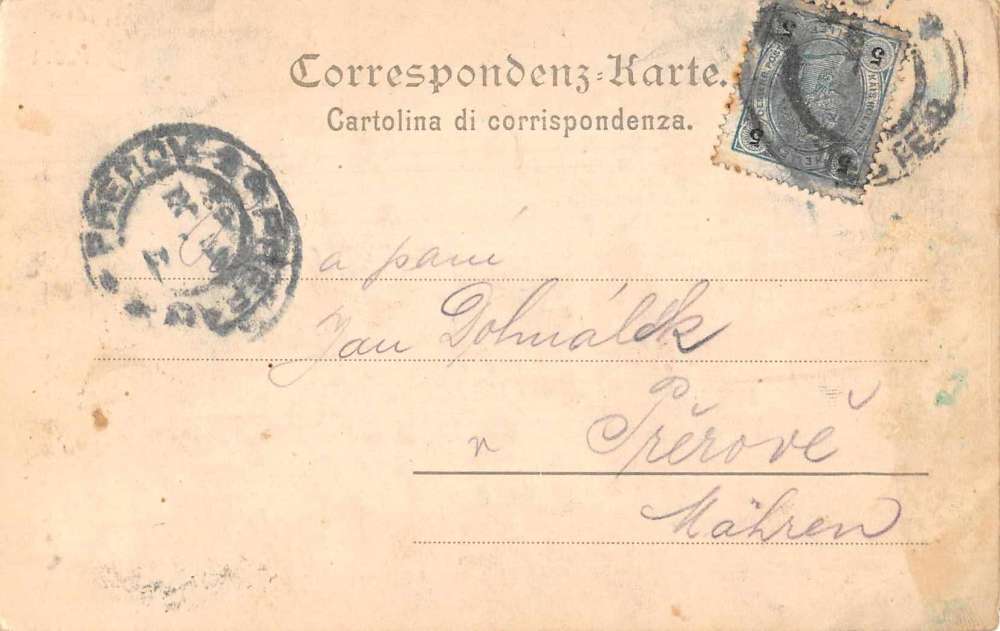 Correspondenz-Karte.
Cartolina di corrispondenza.
5
5
5
5
a paní
Jan Dohnálek
v Přerově
Mähren